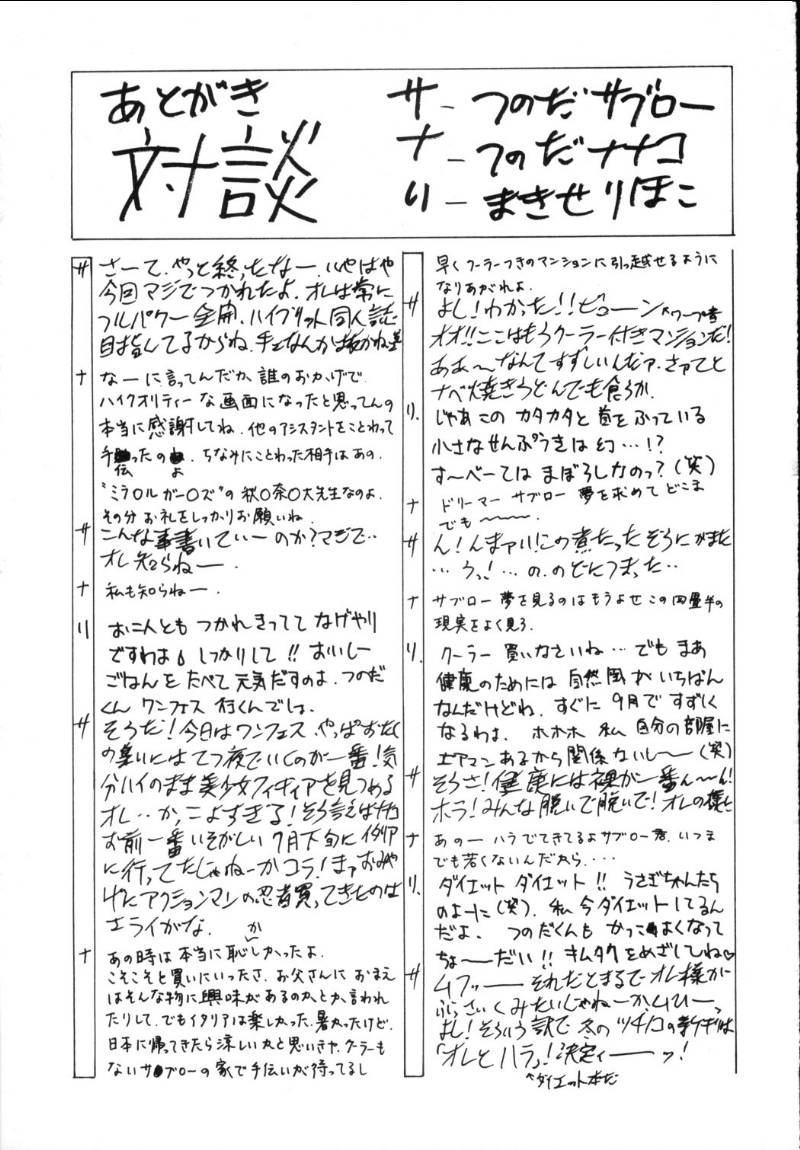 あとがき
対談
サ ー つのだサブロー
ナ ー つのだナナコ
り ー まきせりほこ
サ さーて、やっと終ったなー、いやはや
今回マジでつかれたよ、オレは常に
フルパワー全開、ハイブリット同人誌
目指してるからね、手なんかは抜かねぇ
ナ なーに言ってんだか、誰のおかげで
ハイクオリティーな画面になったと思ってんの
本当に感謝してね、他のアシスタントをことわって
手伝ったのよ、ちなみにことわった相手はあの、
“ミラ○ルガー○ズ”の秋○奈○大先生なのよ、
その分お礼をしっかりお願いね、
サ こんな事書いていーのか?マジで‥
オレ知らねー、
ナ 私も知らねー、
り お二人とも つかれきってて なげやり
ですわよ しっかりして!!おいしー
ごはんをたべて元気だすのよ、つのだ
くん ワンフェス 行くんでしょ、
サ そうだ!今日はワンフェス、やっぱおたく
の集いには てつ夜でいくのが一番!気
分ハイのまま美少女フィギュアを見つめる
オレ‥か、こよすぎる!そう言えばナナコ
お前一番いそがしい7月下旬にイタリア
に行ってたじゃねーかコラ!まァおみや
げにアクションマンの忍者買ってきたのは
エライがな、
ナ あの時は本当に恥しかったよ、
か
こそこそと買いにいったさ、お父さんにおまえ
はそんな物に興味があるのかとか言われ
たりして、でもイタリアは楽しかった、暑かったけど、
日本に帰ってきたら涼しいかと思いきや、クーラーも
ないサブローの家で手伝いが待ってるし
早くクーラーつきのマンションに引っ越せるように
なりあがれよ、
サ よし!わかった!!ビューン ←ワープ音
オオ!!ここはもうクーラー付きマンションだ!
ああ〜なんてすずしいんだァ、さァてと
ナベ焼きうどんでも食うか、
り、じゃあこの カタカタと首をふっている
小さなせんぷうきは幻…!?
すーべーては まぼろしなのっ?(笑)
ナ ドリーマー サブロー 夢を求めてどこま
でも〜〜〜、
サ ん!んまァい!この煮たったぞうにがまた
…うっ!…の、のどにつまった‥
ナ サブロー 夢を見るのはもうよせ この四畳半の
現実をよく見ろ、
り、クーラー 買いなさいね… でも まあ
健康のためには 自然風がいちばん
なんだけどね、すぐに 9月で すずしく
なるわよ、ホホホ 私 自分の部屋に
エアマンあるから関係ないし〜(笑)
サ そうさ!健康には裸が一番ん〜ん!
ホラ!みんな脱いで脱いで!オレの様に
ナ あのー ハラでてきてるよサブロー君、いつま
でも若くないんだから、・・・
り、ダイエット ダイエット!!うさぎちゃんたち
のよーに(笑)、私 今ダイエットしてるん
だよ、つのだくんも かっこよくなって
ちょーだい!!キムタクをめざしてね♡
サ ムフッー それだとまるでオレ様が
ぶさいくみたいじゃねーか、ムヒーっ
よし!そういう訳で 冬の ツチノコの新刊は
「オレとハラ」!決定ィーーッ!
^ダイエット本だ